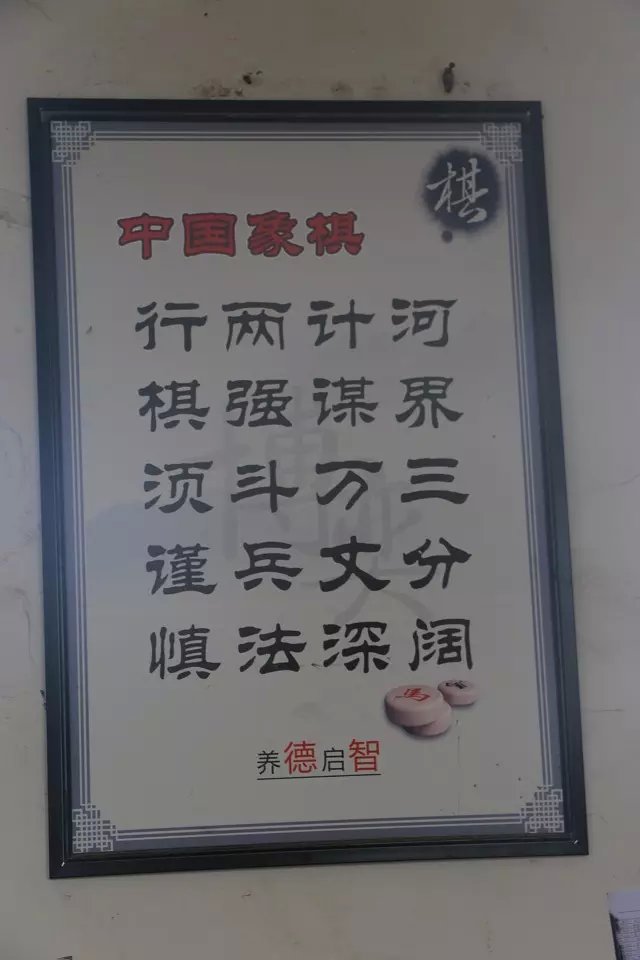 棋
中国象棋
河界三分阔
计谋万丈深
两强斗兵法
行棋须谨慎
博弈
馬
养德启智